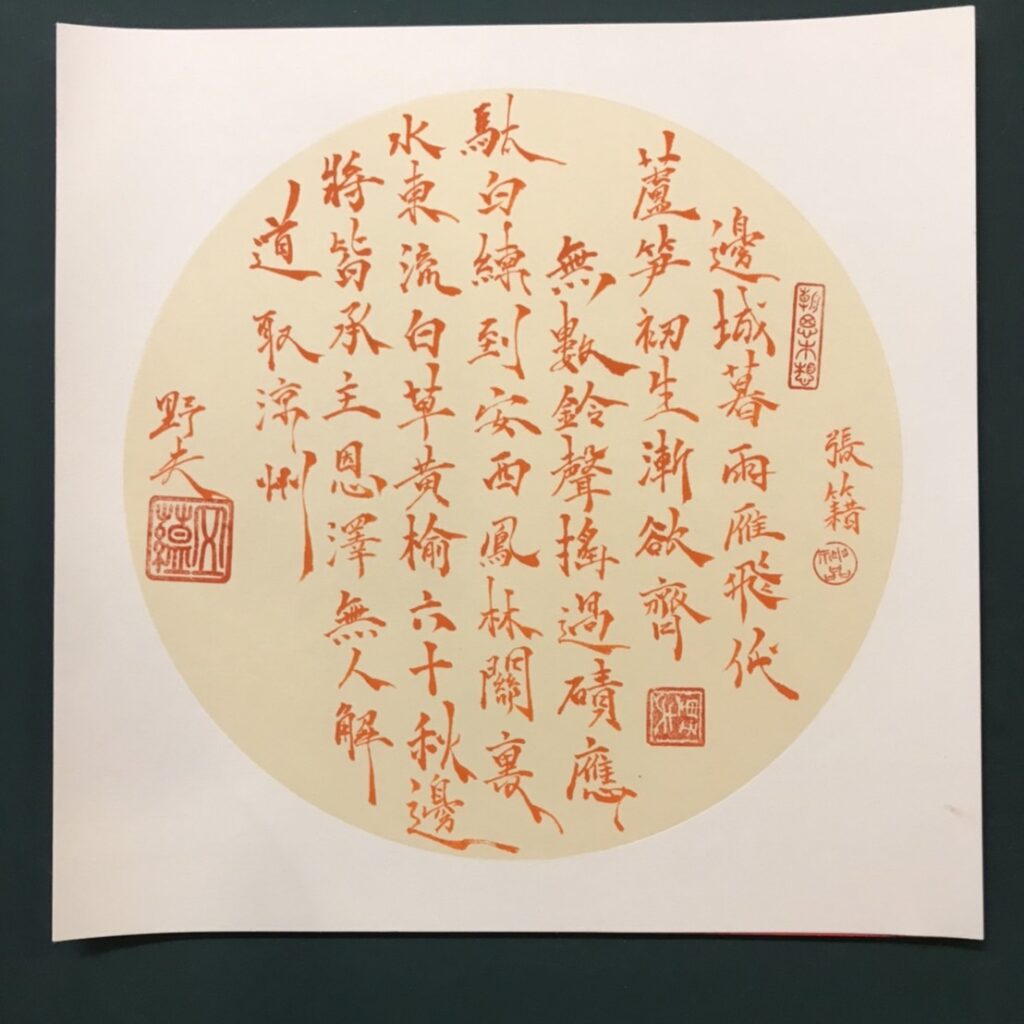 張籍
朝思木想
邊城暮雨雁飛低
蘆笋初生漸欲齊
無數鈴聲搖過磧應
馱白練到安西鳳林關裏
水東流白草黃榆六十秋邊
將皆承主恩澤無人解
道取涼州
野夫